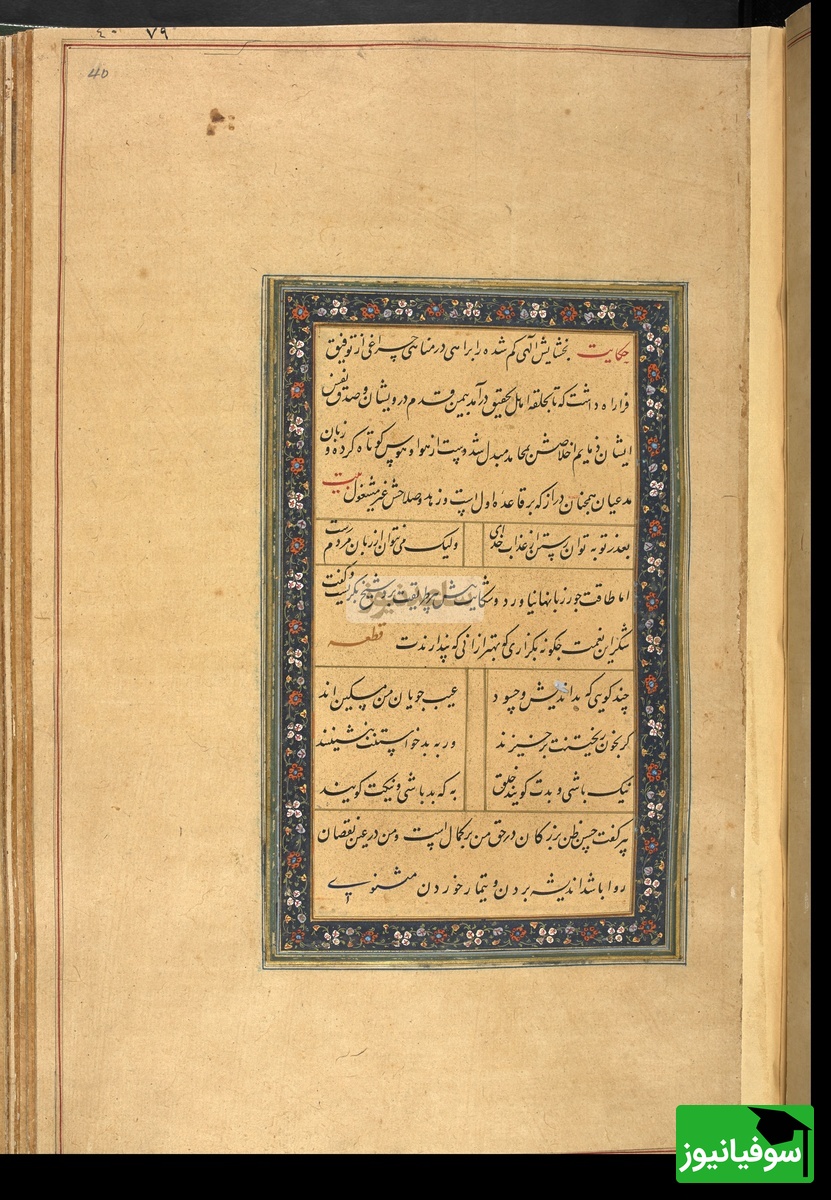 ٤٠ ٧٩
40
حکایت بخشایش الهی کم شده را براهی در مناهی چراغی از توفیق
فرا راه داشت که تا بحلقه اهل تحقیق درآمد بیمن قدم درویشان و صدق نفس
ایشان ذمایم اخلاقش بمحامد مبدل شد و دست از هوا و هوس کوتاه کرده و زبان
مدعیان همچنان دراز که بر قاعده اول است و زهد و صلاحش غیر مشغول بیت
بعذر توبه توان رستن از عذاب خدای ولیک می نتوان از زبان مردم رست
اما طاقت جور زبانها نیاورد و شکایت پیش پیر طریقت برد شیخ بگریست و گفت
شکر این نعمت چگونه بگزاری که بهتر از آنی که پندارندت قطعه
چند گویی که بداندیش و حسود عیب جویان من مسکین اند
گر بخون ریختنت برخیزند ور به بد خواستنت بنشینند
نیک باشی و بدت گویند خلق به که بد باشی و نیکت گویند
پیر گفت حسن ظن بزرگان در حق من بر کمال است و من در عین نقصان
روا باشد اندیشه بردن و تیمار خوردن مثنوی
سوفیانیوز